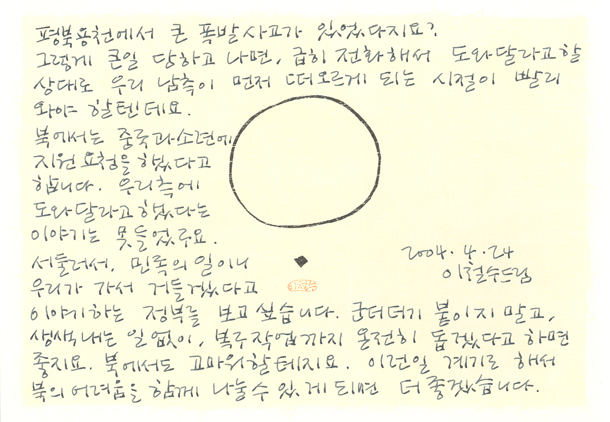 평북용천에서 큰 폭발사고가 있었다지요?
그렇게 큰일 당하고 나면, 급히 전화해서 도와달라고 할
상대로 우리 남측이 먼저 떠오르게 되는 시절이 빨리
와야 할텐데요.
북에서는 중국과 소련에
지원요청을 했다고
합니다. 우리측에
도와달라고 했다는
이야기는 못들었구요.
서둘러서, 민족의 일이니
우리가 가서 거들겠다고
이야기하는 정부를 보고 싶습니다. 군더더기 붙이지 말고,
생색내는 일 없이, 복구작업까지 온전히 돕겠다고 하면
좋지요. 북에서도 고마워할테지요. 이런일 계기로 해서
북의 어려움을 함께 나눌수 있게 되면 더 좋겠습니다.
2004.4.24
이철수드림